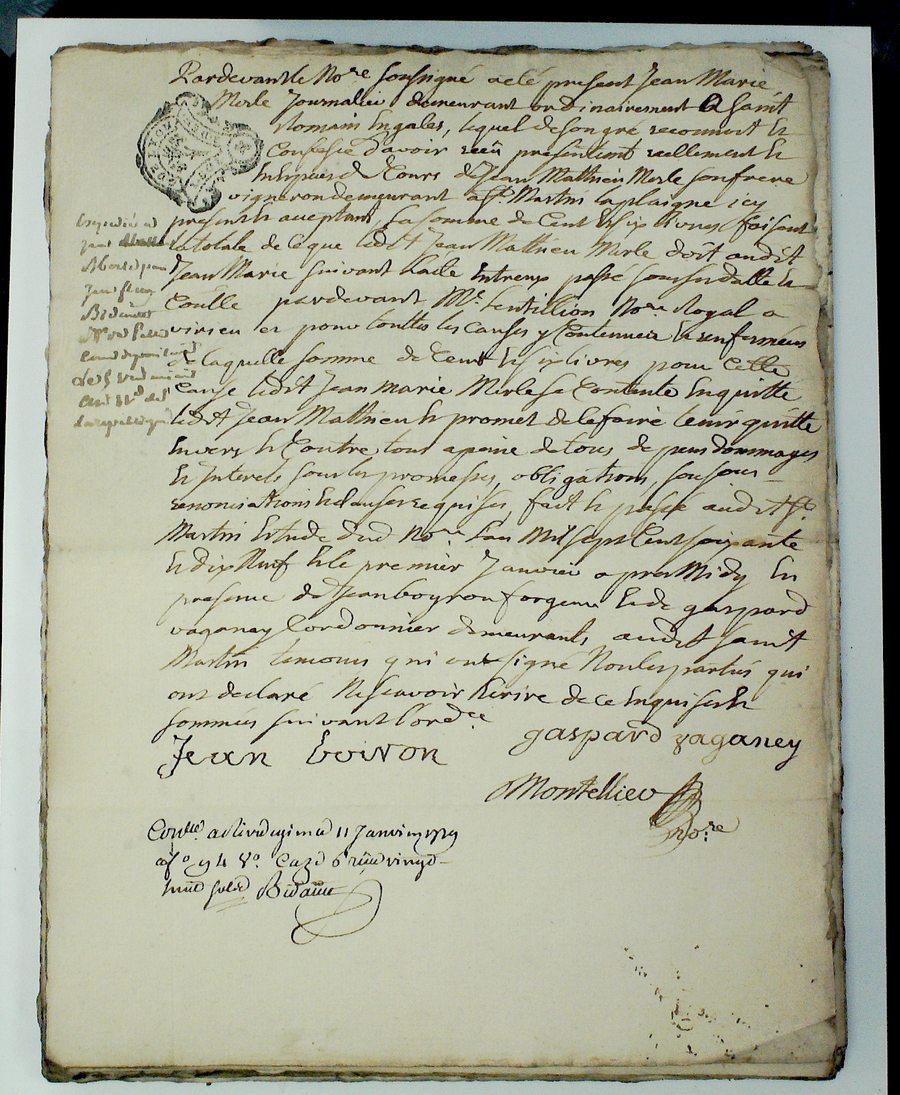 Pardevant le No.re soussigné a eté present Jean Marie
Merle Journalier demeurant ordinairement a saint
Romain en gales, lequel de son gré reconnoit et
Confesse d'avoir reçu presentement reellement et
de Jean Mathieu Merle son frere
vigneron demeurant a St. Martin la plaigne icy
present et aceptant, la somme de Cent et six livres faisant
la totale de ce que ledit Jean Mathieu Merle doit audit
Jean Marie suivant l'acte entreux passé
pardevant Me. No.re Royal a
virieu et pour touttes les Causes y Contenues et renfermées
de laquelle somme de Cent et six livres pour cette
Cause ledit Jean Marie Merle se Contente en quitte
ledit Jean Mathieu et promet de le faire tenir quitte
envers et Contre tous a peine de tous depens dommages
et interets sous les promesses, obligations,
renonciations et clauses requises, fait et passé audit St.
Martin Etude dud No.re L'an Mil sept Cent soixante
et dix Neuf et le premier Janvier apres Midy en
presence de Jean boyron forgeur et de gaspard
vaganay Cordonnier demeurants audit saint
Martin temoins qui ont signé Non les parties qui
ont declaré Ne scavoir Ecrire de ce enquises et
sommées suivant l'ord.ce
Jean boiron gaspard vaganey
Montellier
No.re
Con.lle a Rivedegier le 11 Janvier 1779
fo 94 Vo. Caze 6 reçu vingt
huit sols Bidault